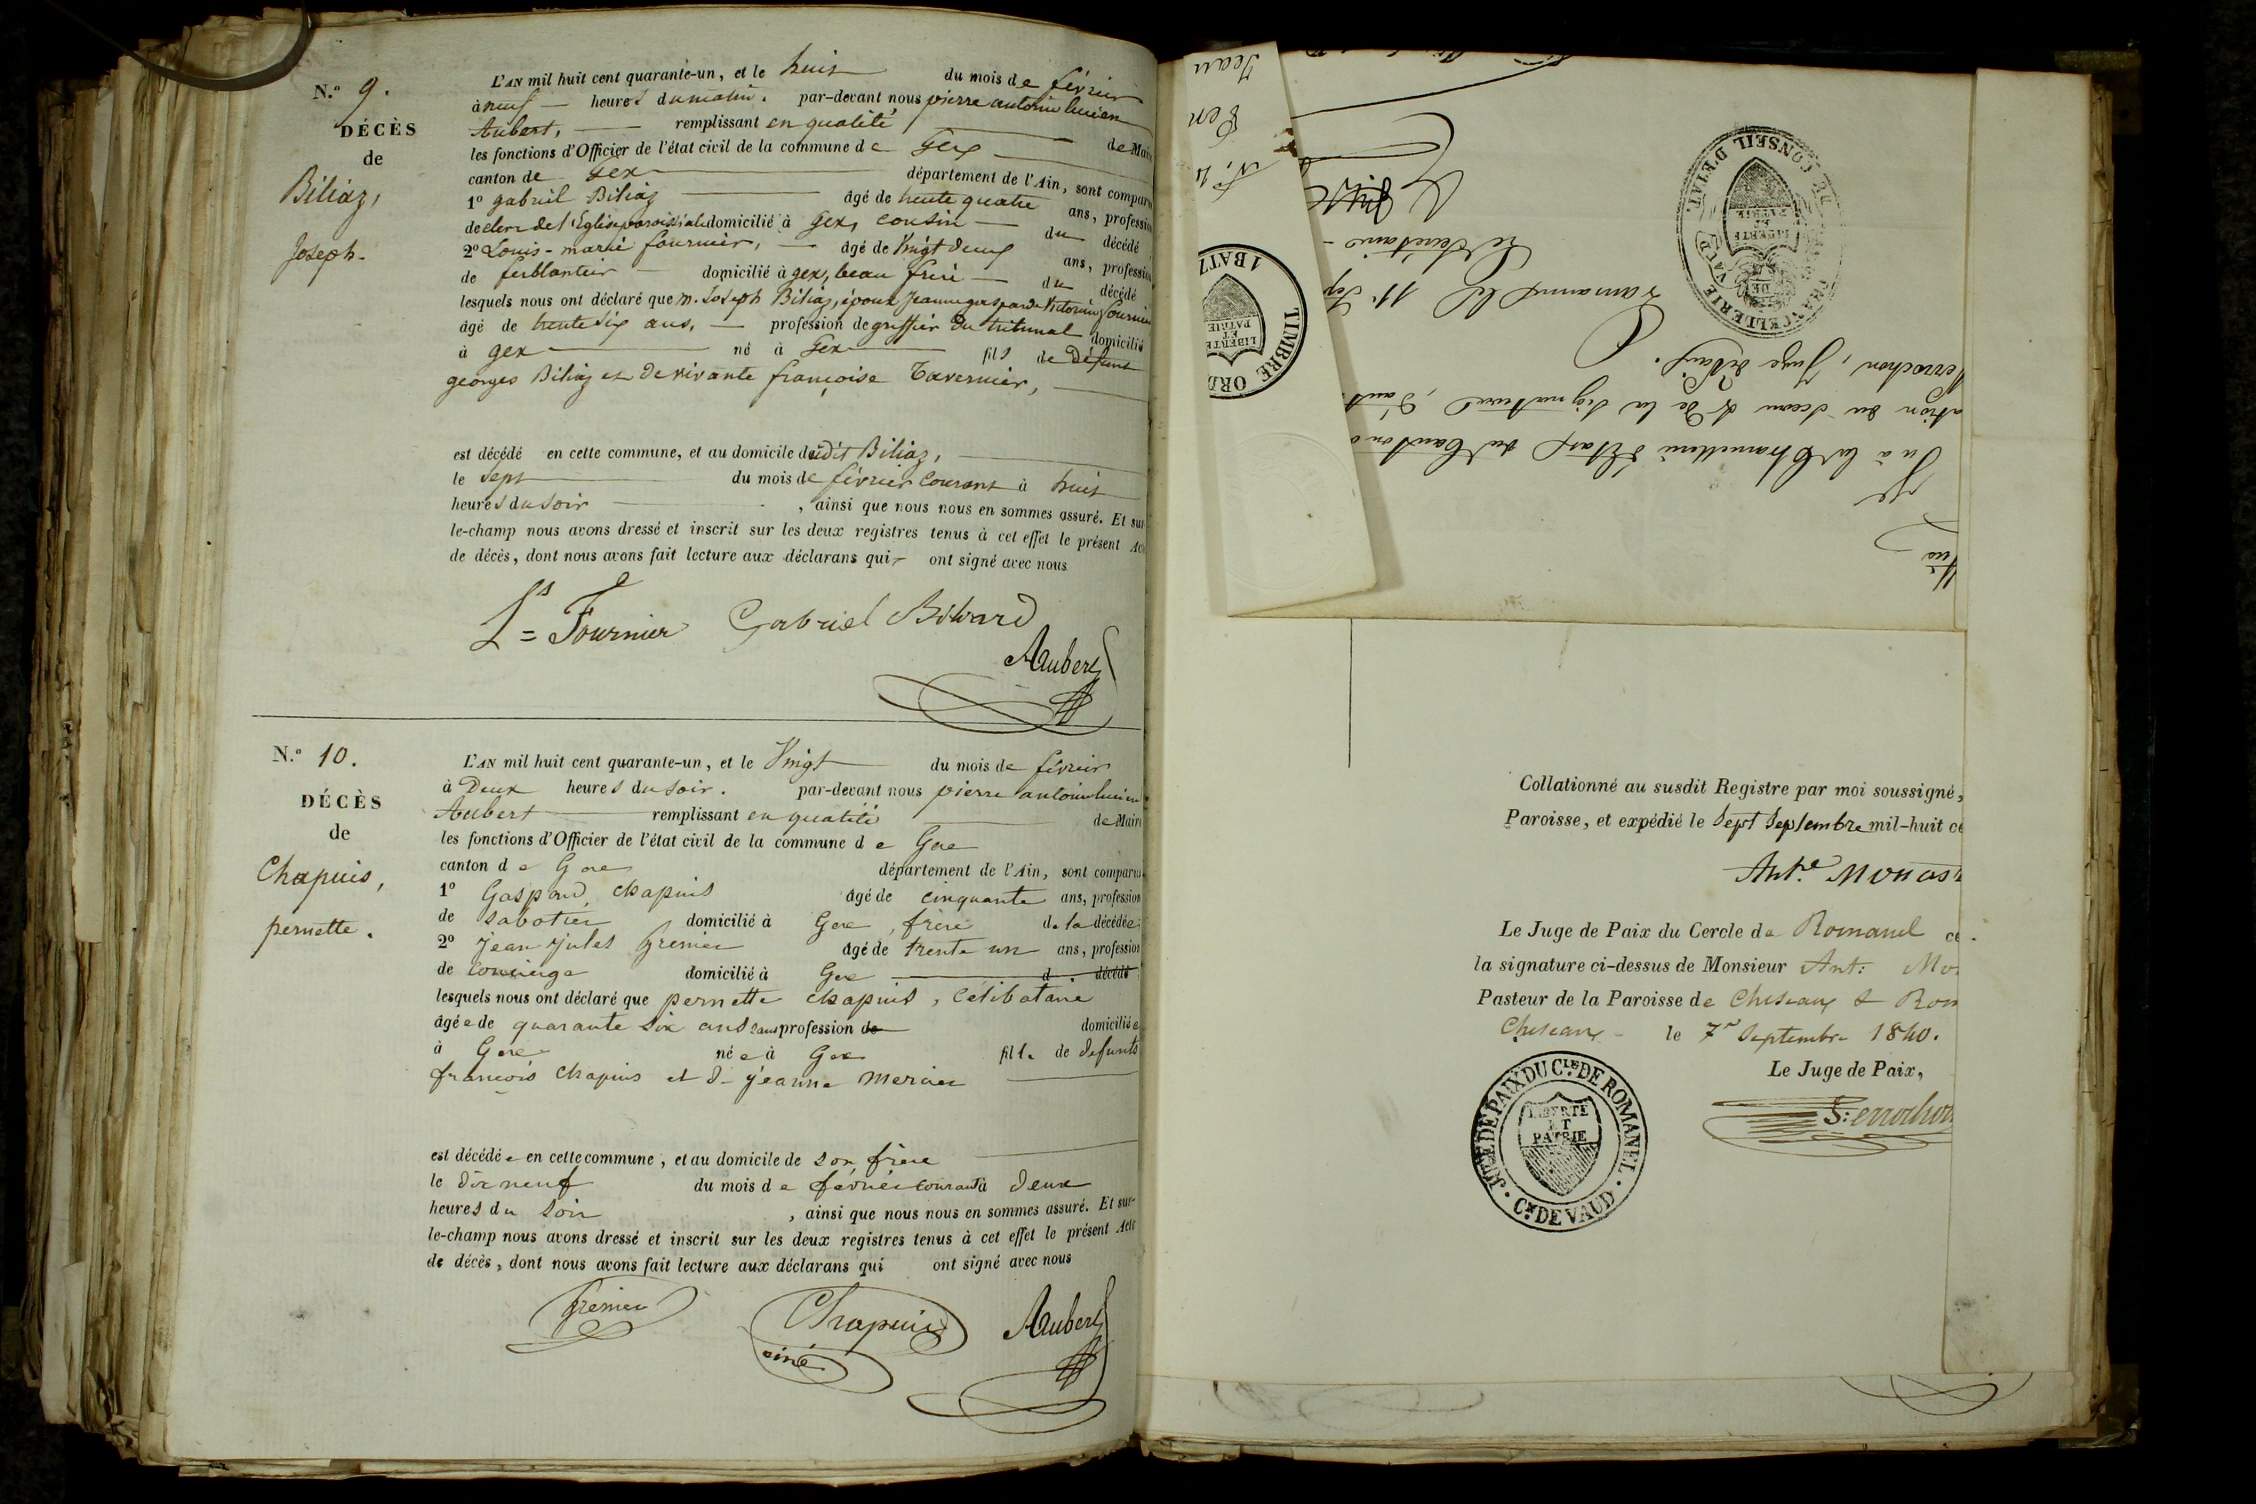 N.º 9.
DÉCÈS
de
Biliaz,
Joseph.
L'AN mil huit cent quarante-un, et le huit du mois de février
à neuf heures du matin. par-devant nous pierre antoine lucien
Aubert, remplissant en qualité de Mai
les fonctions d'Officier de l'état civil de la commune de Gex
canton de Gex département de l'Ain, sont comparu
1º gabriel Biliaz âgé de trente quatre ans, profession
de clerc de l'Eglise paroissiale domicilié à Gex, cousin du décédé
2º Louis-marie fournier, âgé de Vingt deux ans, profession
de ferblantier domicilié à gex, beau frère du décédé
lesquels nous ont déclaré que m. Joseph Biliaz, époux Jeanne gasparde Victorine fournier
âgé de trente six ans, profession de greffier du tribunal domicilié
à gex né à Gex fils de défunt
georges Biliaz et de vivante françoise Tavernier,
est décédé en cette commune, et au domicile dudit Biliaz,
le sept du mois de février courant à huit
heures du soir , ainsi que nous nous en sommes assuré. Et sur
le-champ nous avons dressé et inscrit sur les deux registres tenus à cet effet le présent Acte
de décès, dont nous avons fait lecture aux déclarans qui ont signé avec nous
Ls Fournier Gabriel Biliard
Aubert
N.º 10.
DÉCÈS
de
Chapuis,
pernette.
L'AN mil huit cent quarante-un, et le Vingt du mois de février
à Deux heures du soir. par-devant nous pierre antoine lucien
Aubert remplissant en qualité de Maire
les fonctions d'Officier de l'état civil de la commune de Gex
canton de Gex département de l'Ain, sont comparus
1º Gaspard Chapuis âgé de cinquante ans, profession
de sabotier domicilié à Gex, frère de la décédée
2º Jean Jules Grenier âgé de trente un ans, profession
de concierge domicilié à Gex d décédé
lesquels nous ont déclaré que pernette chapuis, célibataire
âgée de quarante six ans sans profession de domiciliée
à Gex née à Gex fille de defunts
françois Chapuis et de jeanne Mercier
est décédée en cette commune, et au domicile de son frère
le dix neuf du mois de février courant à deux
heures du soir , ainsi que nous nous en sommes assuré. Et sur-
le-champ nous avons dressé et inscrit sur les deux registres tenus à cet effet le présent Acte
de décès, dont nous avons fait lecture aux déclarans qui ont signé avec nous
Grenier Chapuis Aubert
ainé
Jean
CHANCELLERIE DU CONSEIL D'ÉTAT.
LIBERTÉ ET PATRIE
Vu à la Chancellerie d'Etat du Canton
ation du sceau & de la signature d'aut
Perrochon, Juge de Paix.
Lausanne le 11e Sep
Le Secrétaire
TIMBRE ORD
1 BATZ
LIBERTÉ ET PATRIE
Collationné au susdit Registre par moi soussigné,
Paroisse, et expédié le Sept Septembre mil-huit ce
Ant.e Monast
Le Juge de Paix du Cercle de Romanel ce
la signature ci-dessus de Monsieur Ant: Mo
Pasteur de la Paroisse de Cheseaux & Rom
Cheseaux le 7e Septembre 1840.
Le Juge de Paix,
JCE DE PAIX DU CLE DE ROMANEL. CN DE VAUD.
LIBERTÉ
ET
PATRIE